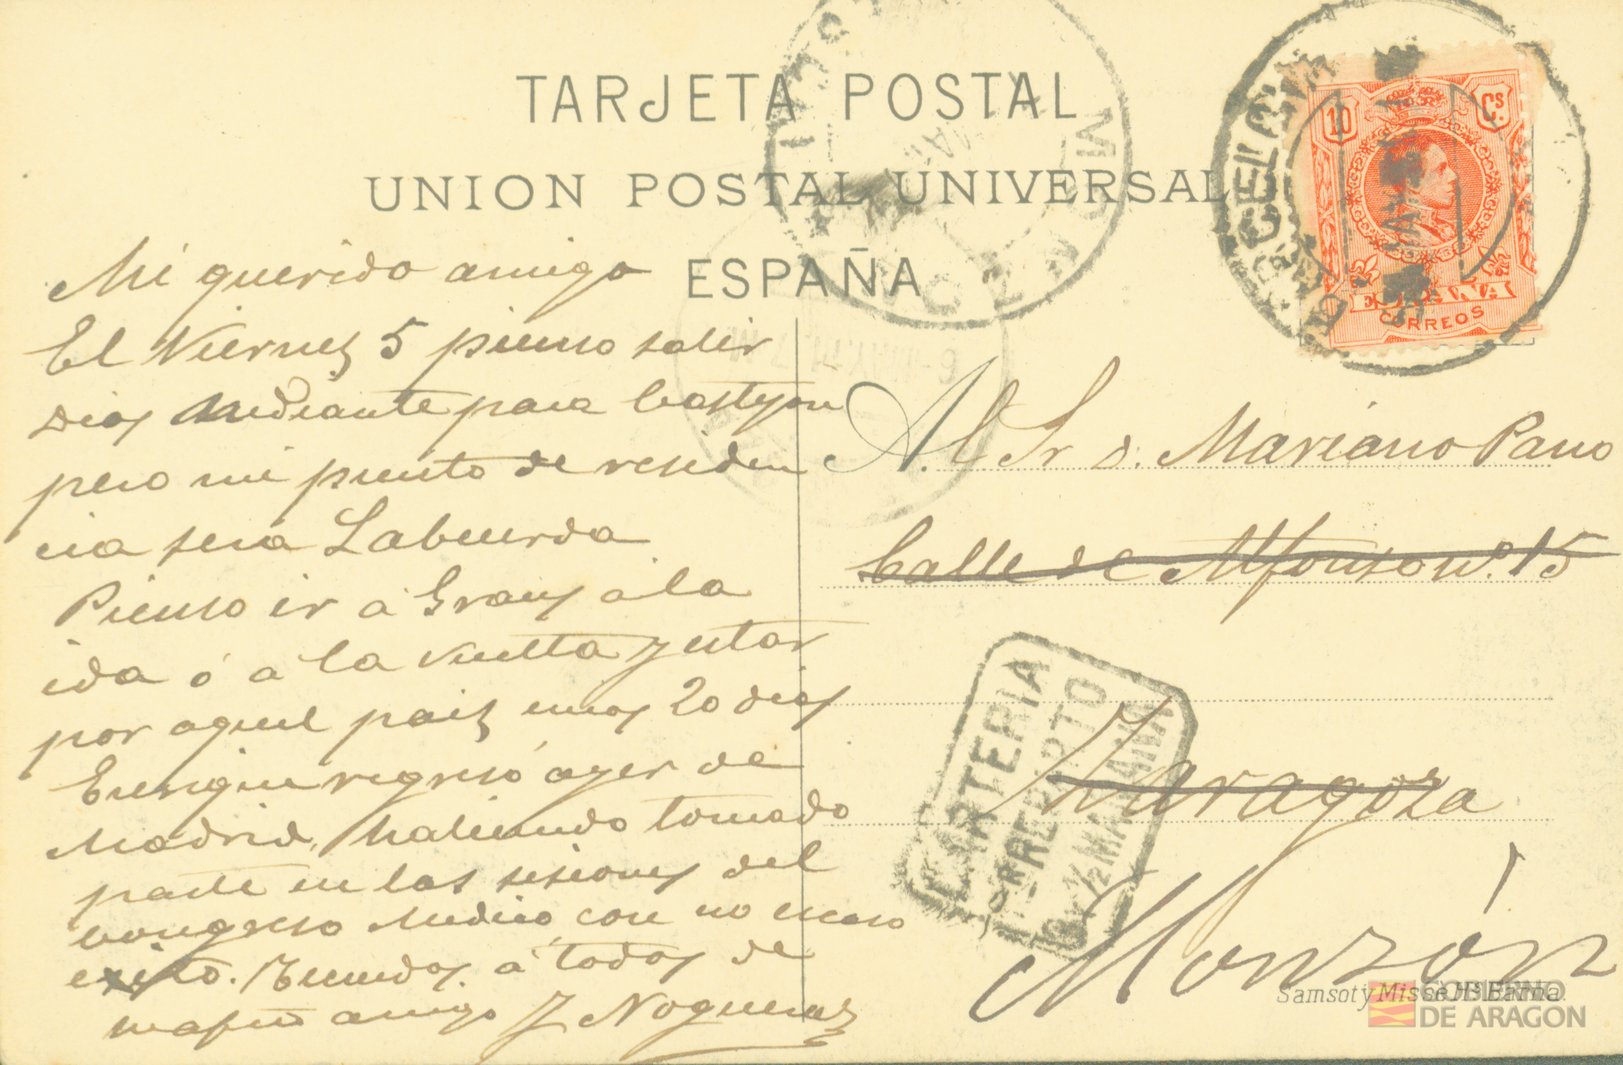 TARJETA POSTAL
UNION POSTAL UNIVERSAL
ESPAÑA
10 Cs
ESPAÑA
CORREOS
BARCELONA
MONZON
Mi querido amigo
El Viernes 5 pienso salir
Dios mediante para Castejon
pero mi punto de residen
cia será Labuerda
Pienso ir á Graus á la
ida ó á la vuelta y estar
por aquel pais unos 20 dias
Enrique regresó ayer de
Madrid, habiendo tomado
parte en las sesiones del
Congreso Médico con no escaso
exito. Rcuerdos á todos de
su afmo amigo J Nogueras
Al Sr D. Mariano Pano
Calle de Alfonso nº 15
Zaragoza
Monzón
CARTERIA
1er REPARTO
9 ½ MAÑANA
Samsot y Missé Hs Barna.
GOBIERNO
DE ARAGON